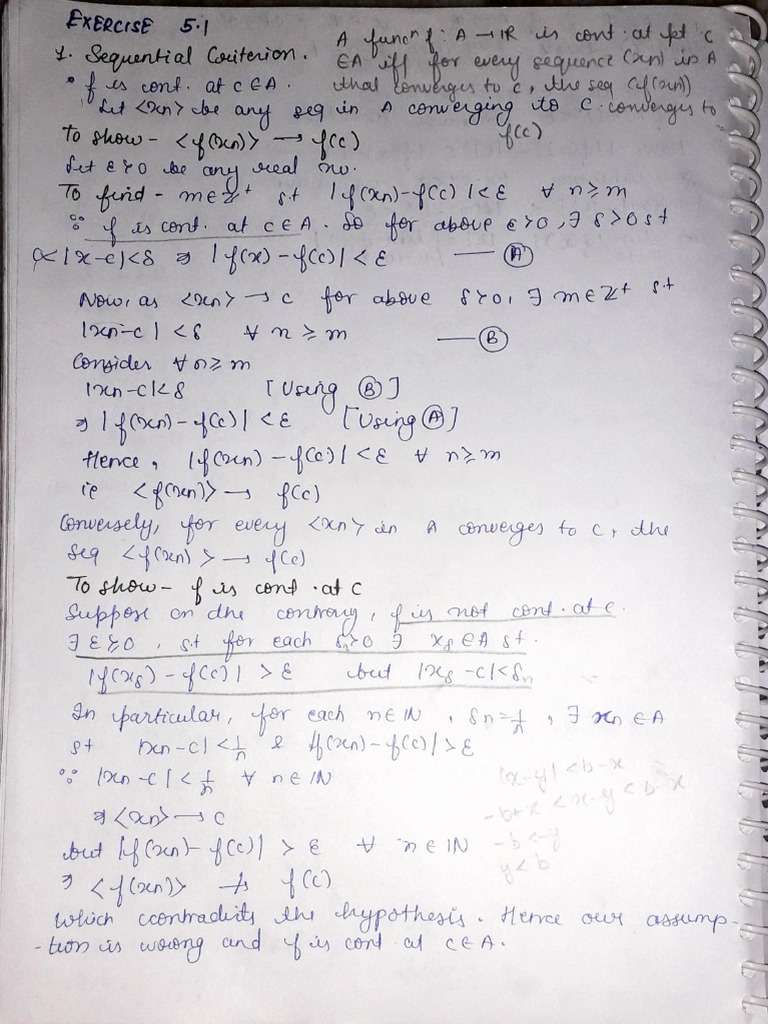 EXERCISE 5.1
1. Sequential Criterion. A funcⁿ f: A → IR is cont. at pt c
∈A iff for every sequence (xn) in A
that converges to c, the seq (f(xn))
converges to
f(c)
• f is cont. at c∈A.
Let <xn> be any seq in A converging to c.
To show - <f(xn)> → f(c)
Let ε>0 be any real no.
To find - m∈Z⁺ s.t |f(xn)-f(c)|<ε ∀ n≥m
∵ f is cont. at c∈A. So for above ε>0, ∃ δ>0 st
|x-c|<δ ⇒ |f(x)-f(c)|<ε — Ⓐ
Now, as <xn> → c for above δ>0, ∃ m∈Z⁺ s.t
|xn-c| <δ ∀ n≥m — Ⓑ
Consider ∀ n≥m
|xn-c|<δ [Using Ⓑ]
⇒ |f(xn)-f(c)| <ε [Using Ⓐ]
Hence, |f(xn)-f(c)|<ε ∀ n≥m
ie <f(xn)> → f(c)
Conversely, for every <xn> in A converges to c, the
seq <f(xn)> → f(c)
To show - f is cont. at c
Suppose on the contrary, f is not cont. at c.
∃ ε>0, s.t for each δn>0 ∃ xδ∈A st.
|f(xδ)-f(c)| >ε but |xδ-c|<δn
In particular, for each n∈IN, δn=1/n, ∃ xn∈A
st |xn-c|<1/n & |f(xn)-f(c)|>ε
∵ |xn-c|<1/n ∀ n∈IN
⇒ <xn> → c
but |f(xn)-f(c)| > ε ∀ n∈IN
⇒ <f(xn)> ↛ f(c)
which ccontradicts the hypothesis. Hence our assump-
-tion is wrong and f is cont at c∈A.
|x-y|<b-x
-b+x <x-y<b-x
-b<-y
y<b